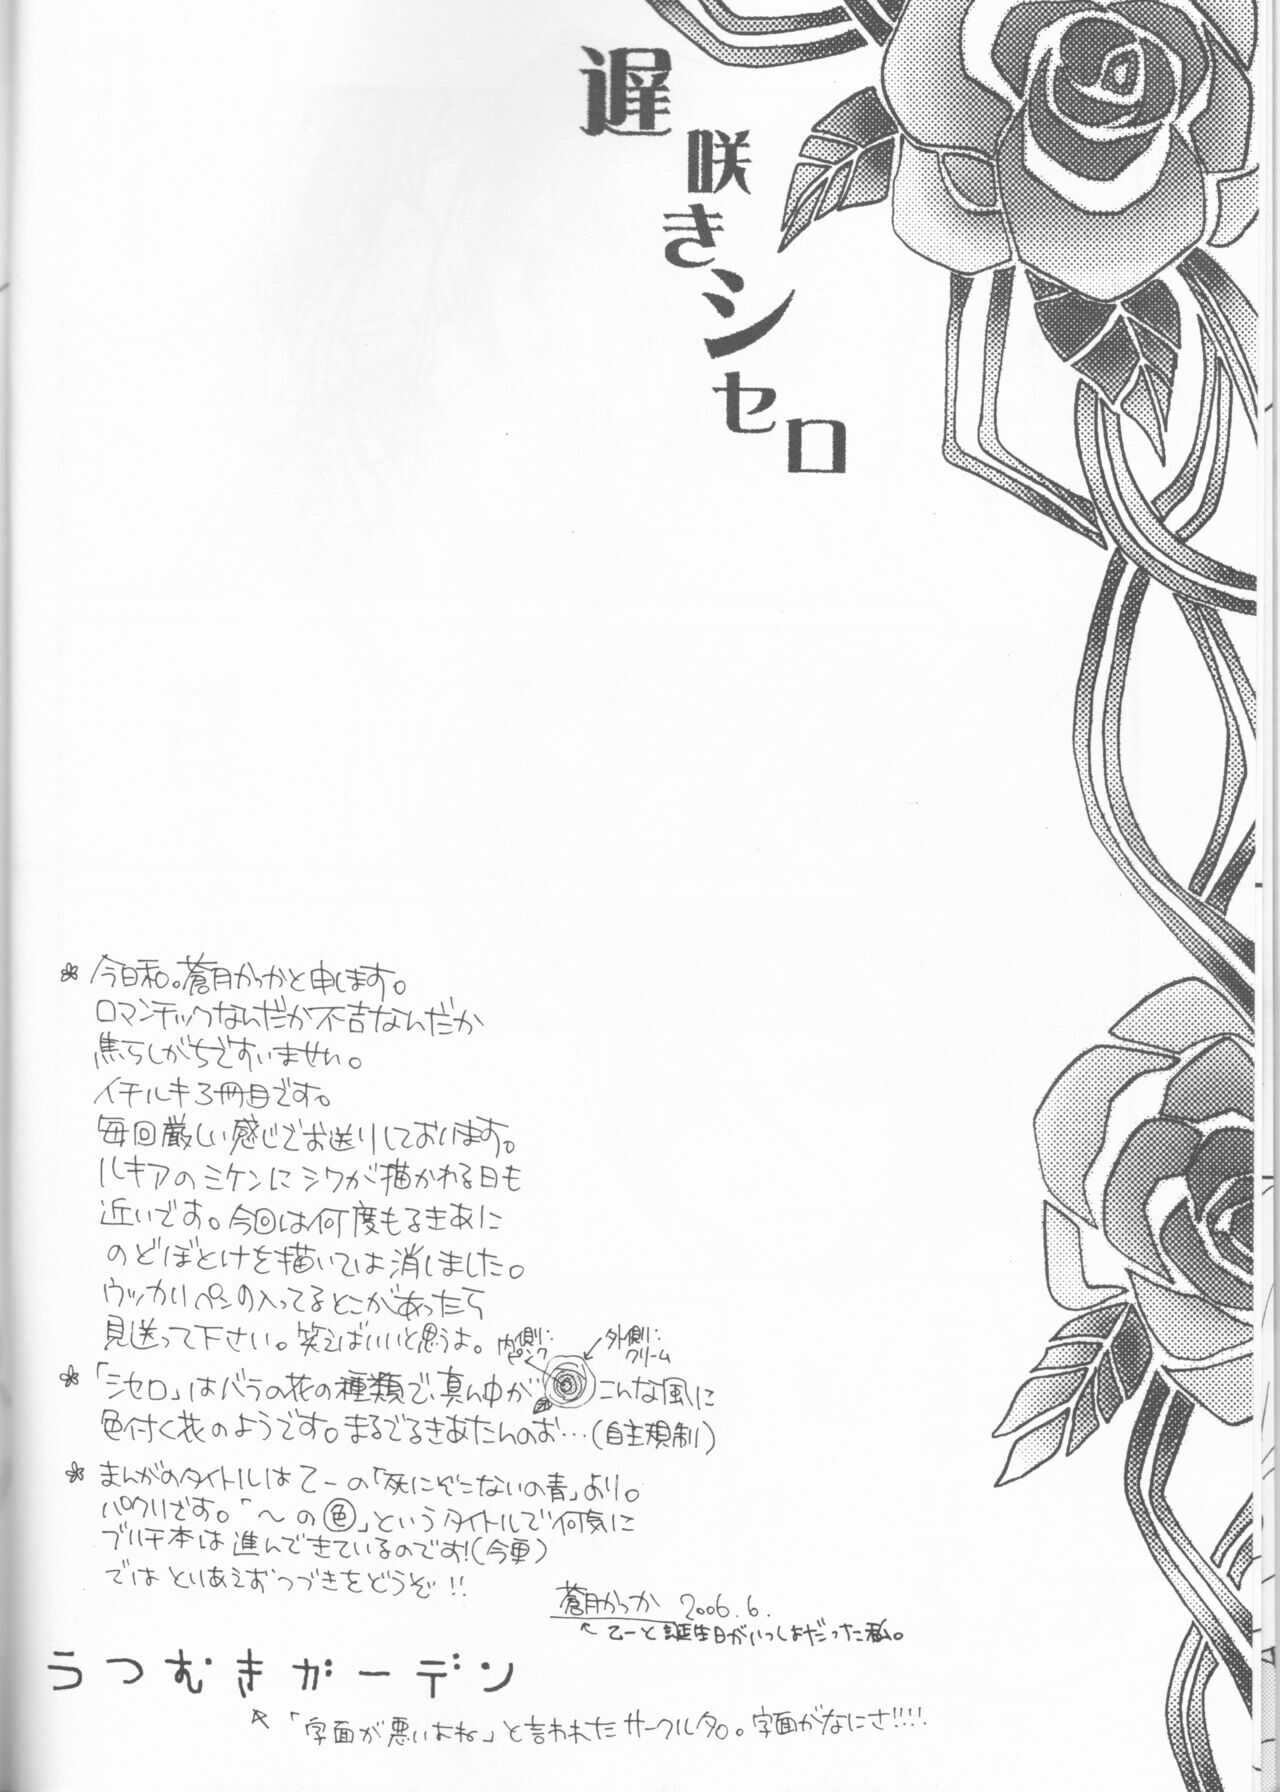 遅咲きシセロ
今日和。蒼月かっかと申します。
ロマンチックなんだか不吉なんだか
焦らしがちですいません。
イチルキ3冊目です。
毎回厳しい感じでお送りしております。
ルキアのミケンにシワが描かれる日も
近いです。今回は何度もるきあに
のどぼとけを描いては消しました。
ウッカリペンの入ってるとこがあったら
見送って下さい。笑えばいいと思うよ。
内側に:ピンク
外側に:クリーム
「シセロ」はバラの花の種類で、真ん中が こんな風に
色付く花のようです。まるでるきあたんのお…(自主規制)
まんがのタイトルは てーの「死にぞこないの青」より。
パクリです。「〜の色」というタイトルで何気に
ブリチ本は進んできているのです!(今更)
では とりあえおつづきをどうぞ!!
蒼月かっか 2006.6.
乙一と誕生日がいっしょだった私。
うつむきガーデン
「字面が悪いよね」と言われたサークル名。字面がなにさ!!!!